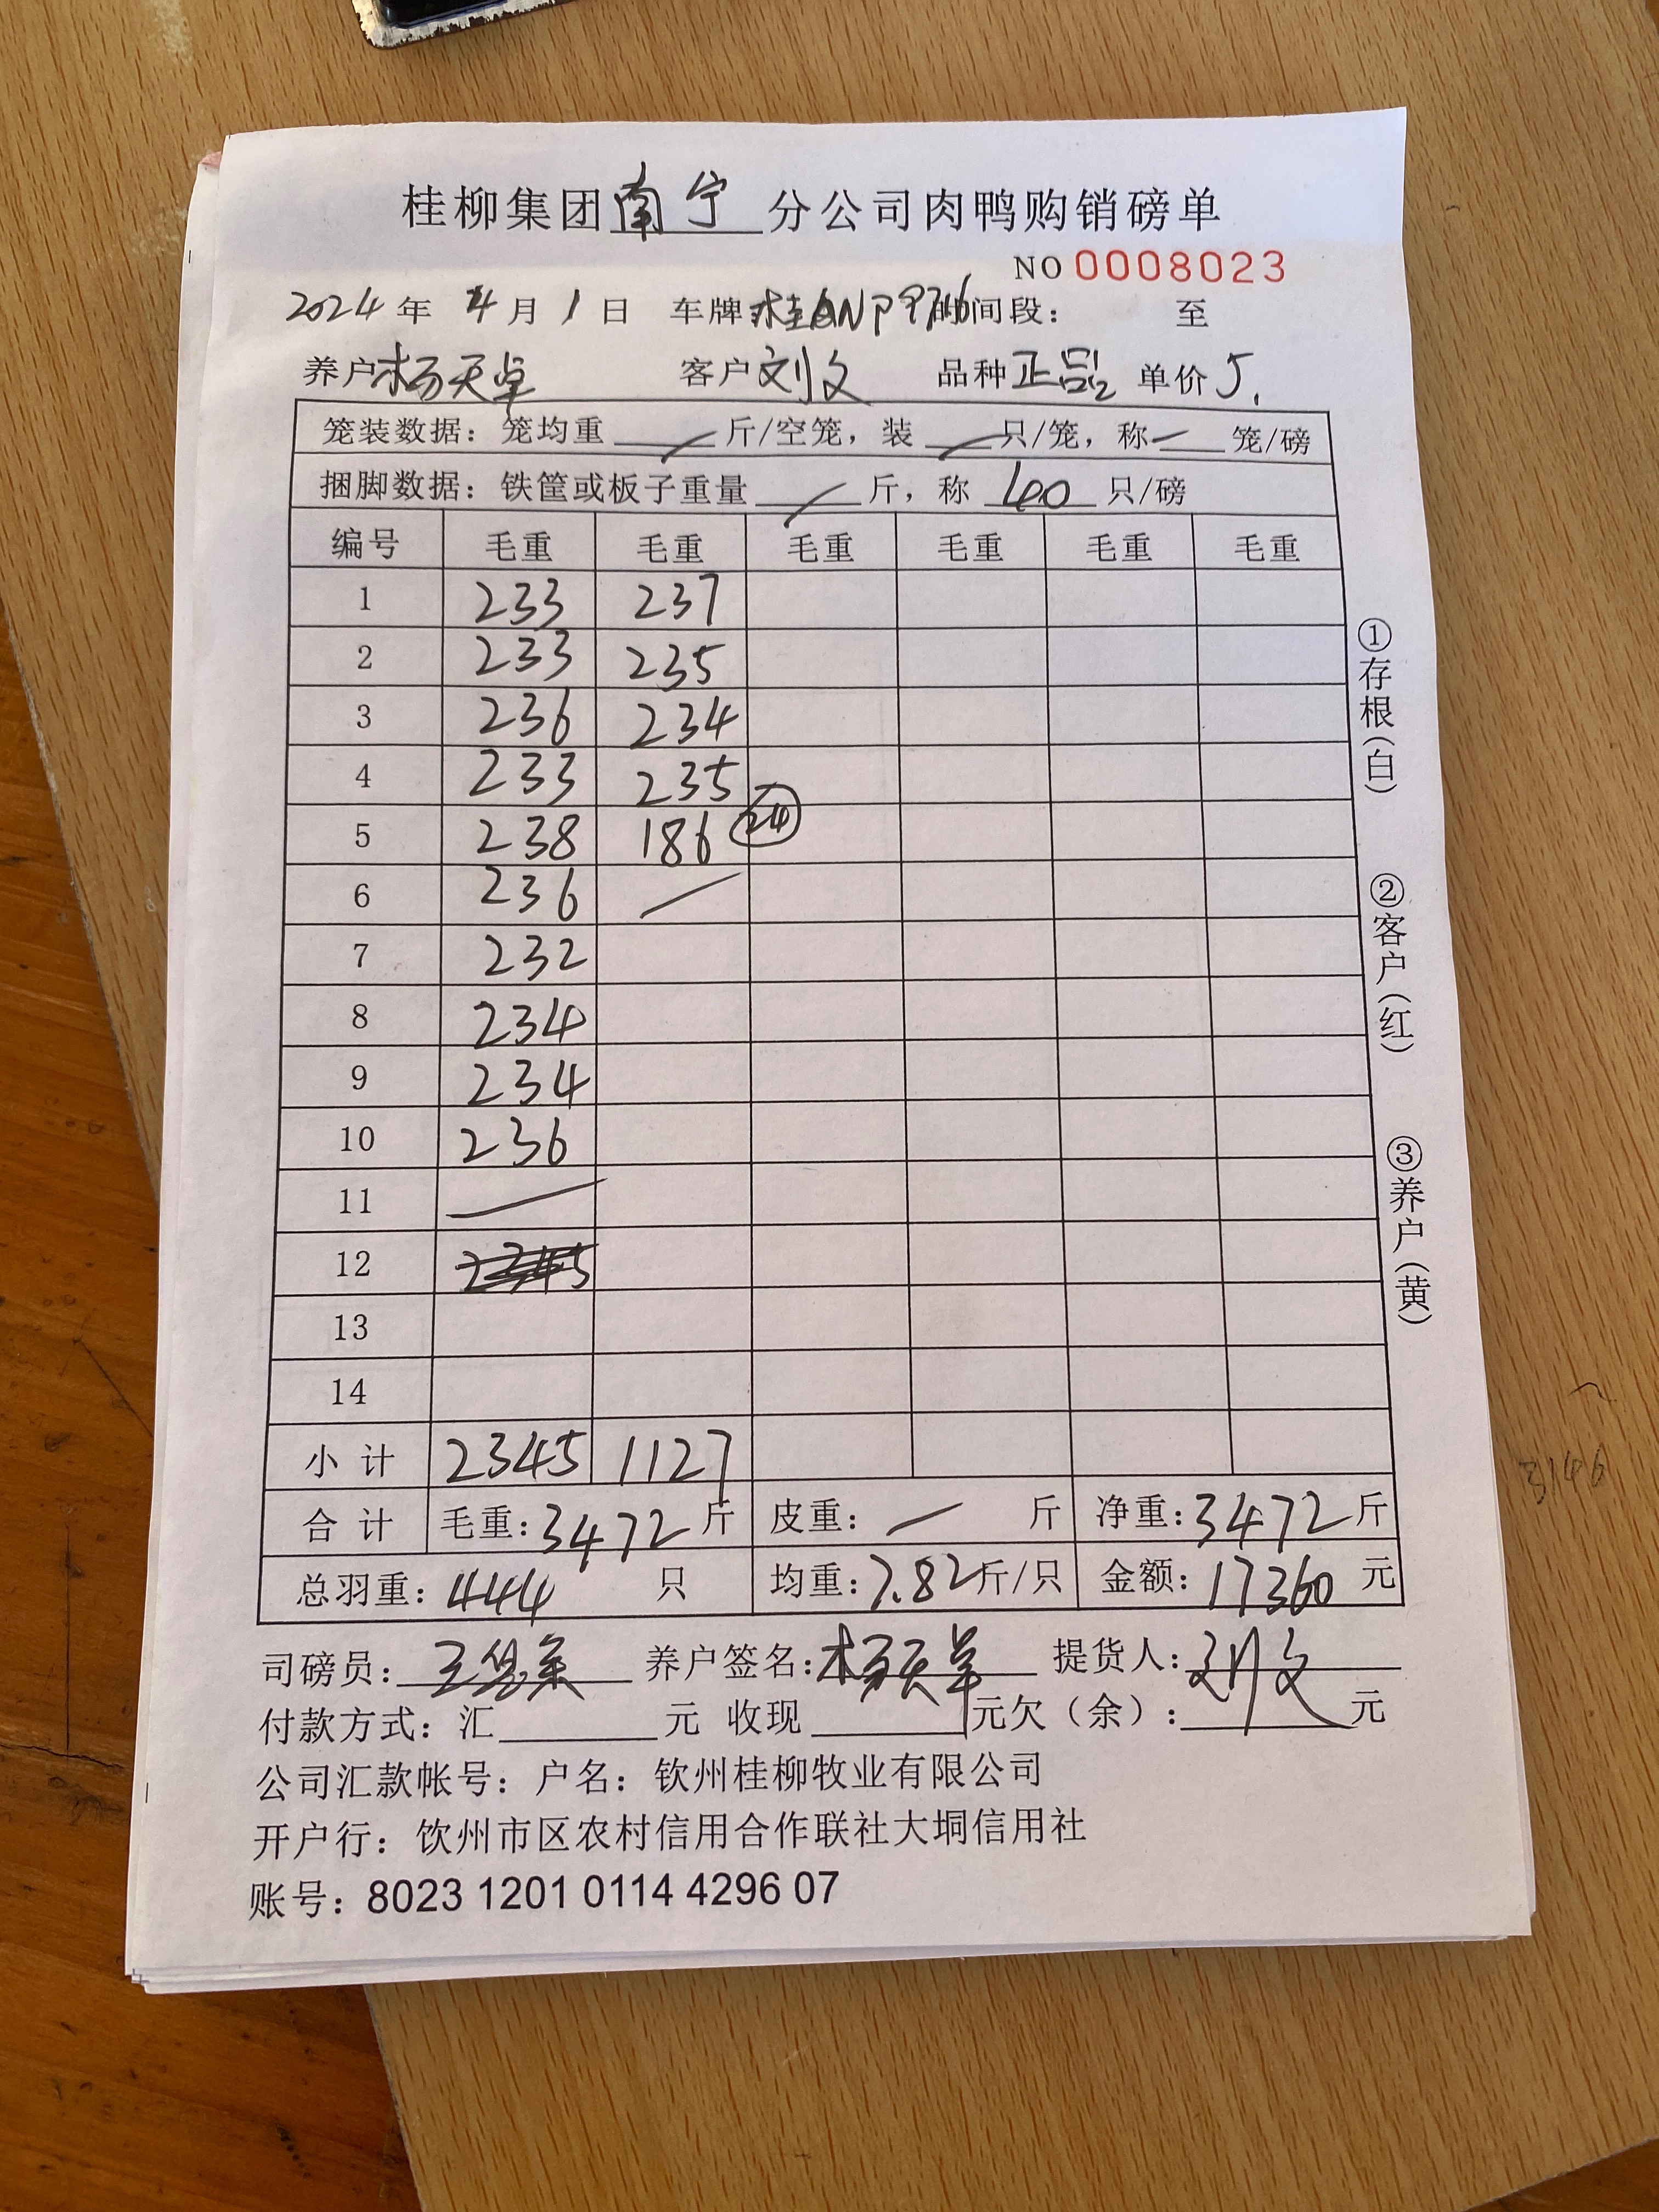 桂柳集团南宁分公司肉鸭购销磅单
NO 0008023
2024年 4月 1日 车牌 时间段： 至
养户杨天卓 客户刘文 品种正品2 单价5.
笼装数据：笼均重 / 斤/空笼，装 / 只/笼，称 / 笼/磅
捆脚数据：铁筐或板子重量 / 斤，称 40 只/磅
编号 毛重 毛重 毛重 毛重 毛重 毛重
1 233 237
2 233 235
3 236 234
4 233 235
5 238 186 24
6 236 /
7 232
8 234
9 234
10 236
11 /
12 2345
13
14
小计 2345 1127
合计 毛重：3472斤 皮重：/ 斤 净重：3472斤
总羽重：444 只 均重：7.82斤/只 金额：17360 元
司磅员： 养户签名：杨天卓 提货人：刘文
付款方式：汇 元 收现 元欠（余）： 元
公司汇款帐号：户名：钦州桂柳牧业有限公司
开户行：饮州市区农村信用合作联社大垌信用社
账号：8023 1201 0114 4296 07
①存根（白）
②客户（红）
③养户（黄）
3146